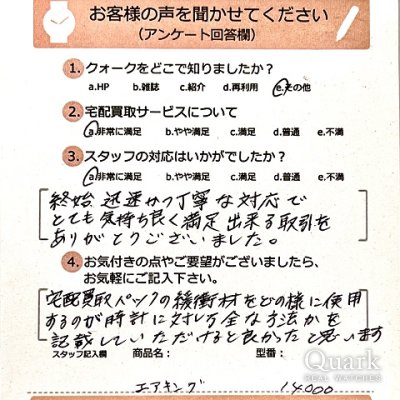 お客様の声を聞かせてください
(アンケート回答欄)
1. クォークをどこで知りましたか?
a.HP b.雑誌 c.紹介 d.再利用 e.その他
2. 宅配買取サービスについて
a.非常に満足 b.やや満足 c.満足 d.普通 e.不満
3. スタッフの対応はいかがでしたか?
a.非常に満足 b.やや満足 c.満足 d.普通 e.不満
終始 迅速かつ丁寧な対応で
とても気持ち良く満足出来る取引を
ありがとうございました。
4. お気付きの点やご要望がございましたら、
お気軽にご記入下さい。
宅配買取パックの緩衝材をどの様に使用
するのが時計に対し万全な方法かを
記載していただけると良かったと思います
スタッフ記入欄 商品名: 型番:
エアキング 14000
Quark
REAL WATCHES